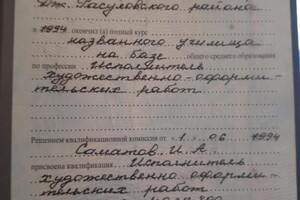 Дж. Расуловского района
в 1994 окончил (а) полный курс
названного училища
на базе общего среднего образования
по профессии Исполнитель
художественно-оформи-
тельских работ
Решением квалификационной комиссии от « 1 » 06 1994
Саматов И. А.
присвоена квалификация Исполнитель
художественно оформи-
тельских работ